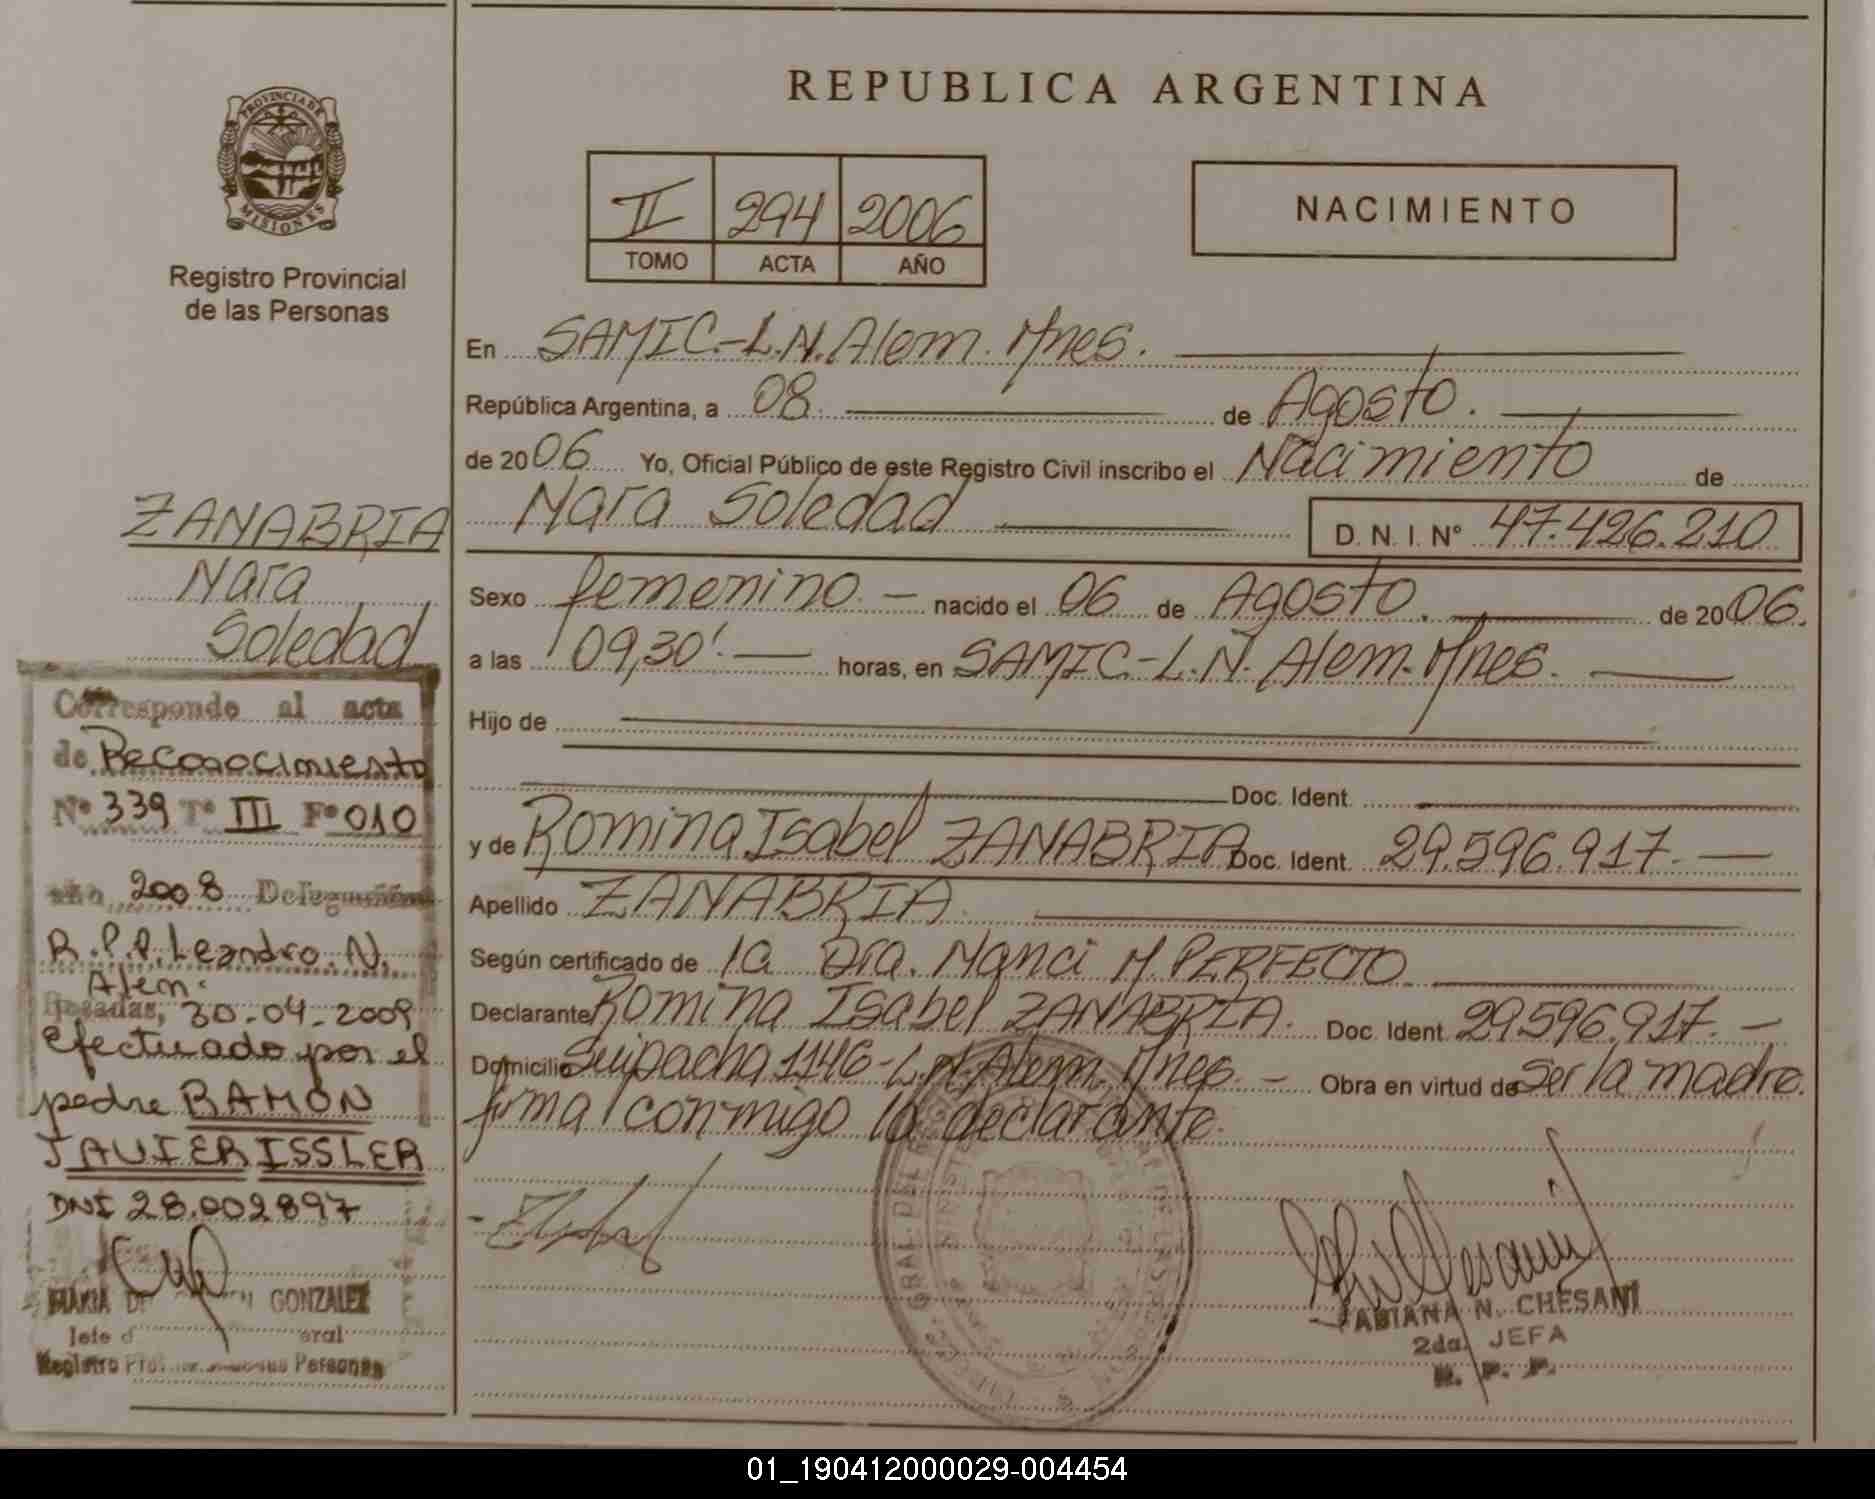 PROVINCIA DE
MISIONES
Registro Provincial
de las Personas
ZANABRIA
Nara
Soledad
Corresponde al acta
de Reconocimiento
Nº 339 Tº III Fº 010
año 2008 Delegación
R.P.P. Leandro. N.
Alem.
Posadas, 30-04-2009
efectuado por el
padre RAMON
JAVIER ISSLER
DNI 28.002897
MARIA DE GONZALEZ
Jefe
Registro Personas
REPUBLICA ARGENTINA
II 294 2006
TOMO ACTA AÑO
NACIMIENTO
En SAMIC.-L.N.Alem. Mnes.
República Argentina, a 08. de Agosto.
de 2006 Yo, Oficial Público de este Registro Civil inscribo el Nacimiento de
Nara Soledad D. N. I. Nº 47.426.210
Sexo femenino. - nacido el 06 de Agosto. de 2006.
a las 09,30'. horas, en SAMIC.-L.N. Alem. Mnes.
Hijo de
Doc. Ident.
y de Romina Isabel ZANABRIA Doc. Ident. 29.596.917.-
Apellido ZANABRIA.
Según certificado de la Dra. Nanci M. PERFECTO
Declarante Romina Isabel ZANABRIA. Doc. Ident. 29.596.917.-
Domicilio Suipacha 1146-L.N.Alem. Mnes. - Obra en virtud de ser la madre.
firma conmigo la declarante.
FABIANA N. CHESANI
2da. JEFA
R. P. P.
01_190412000029-004454